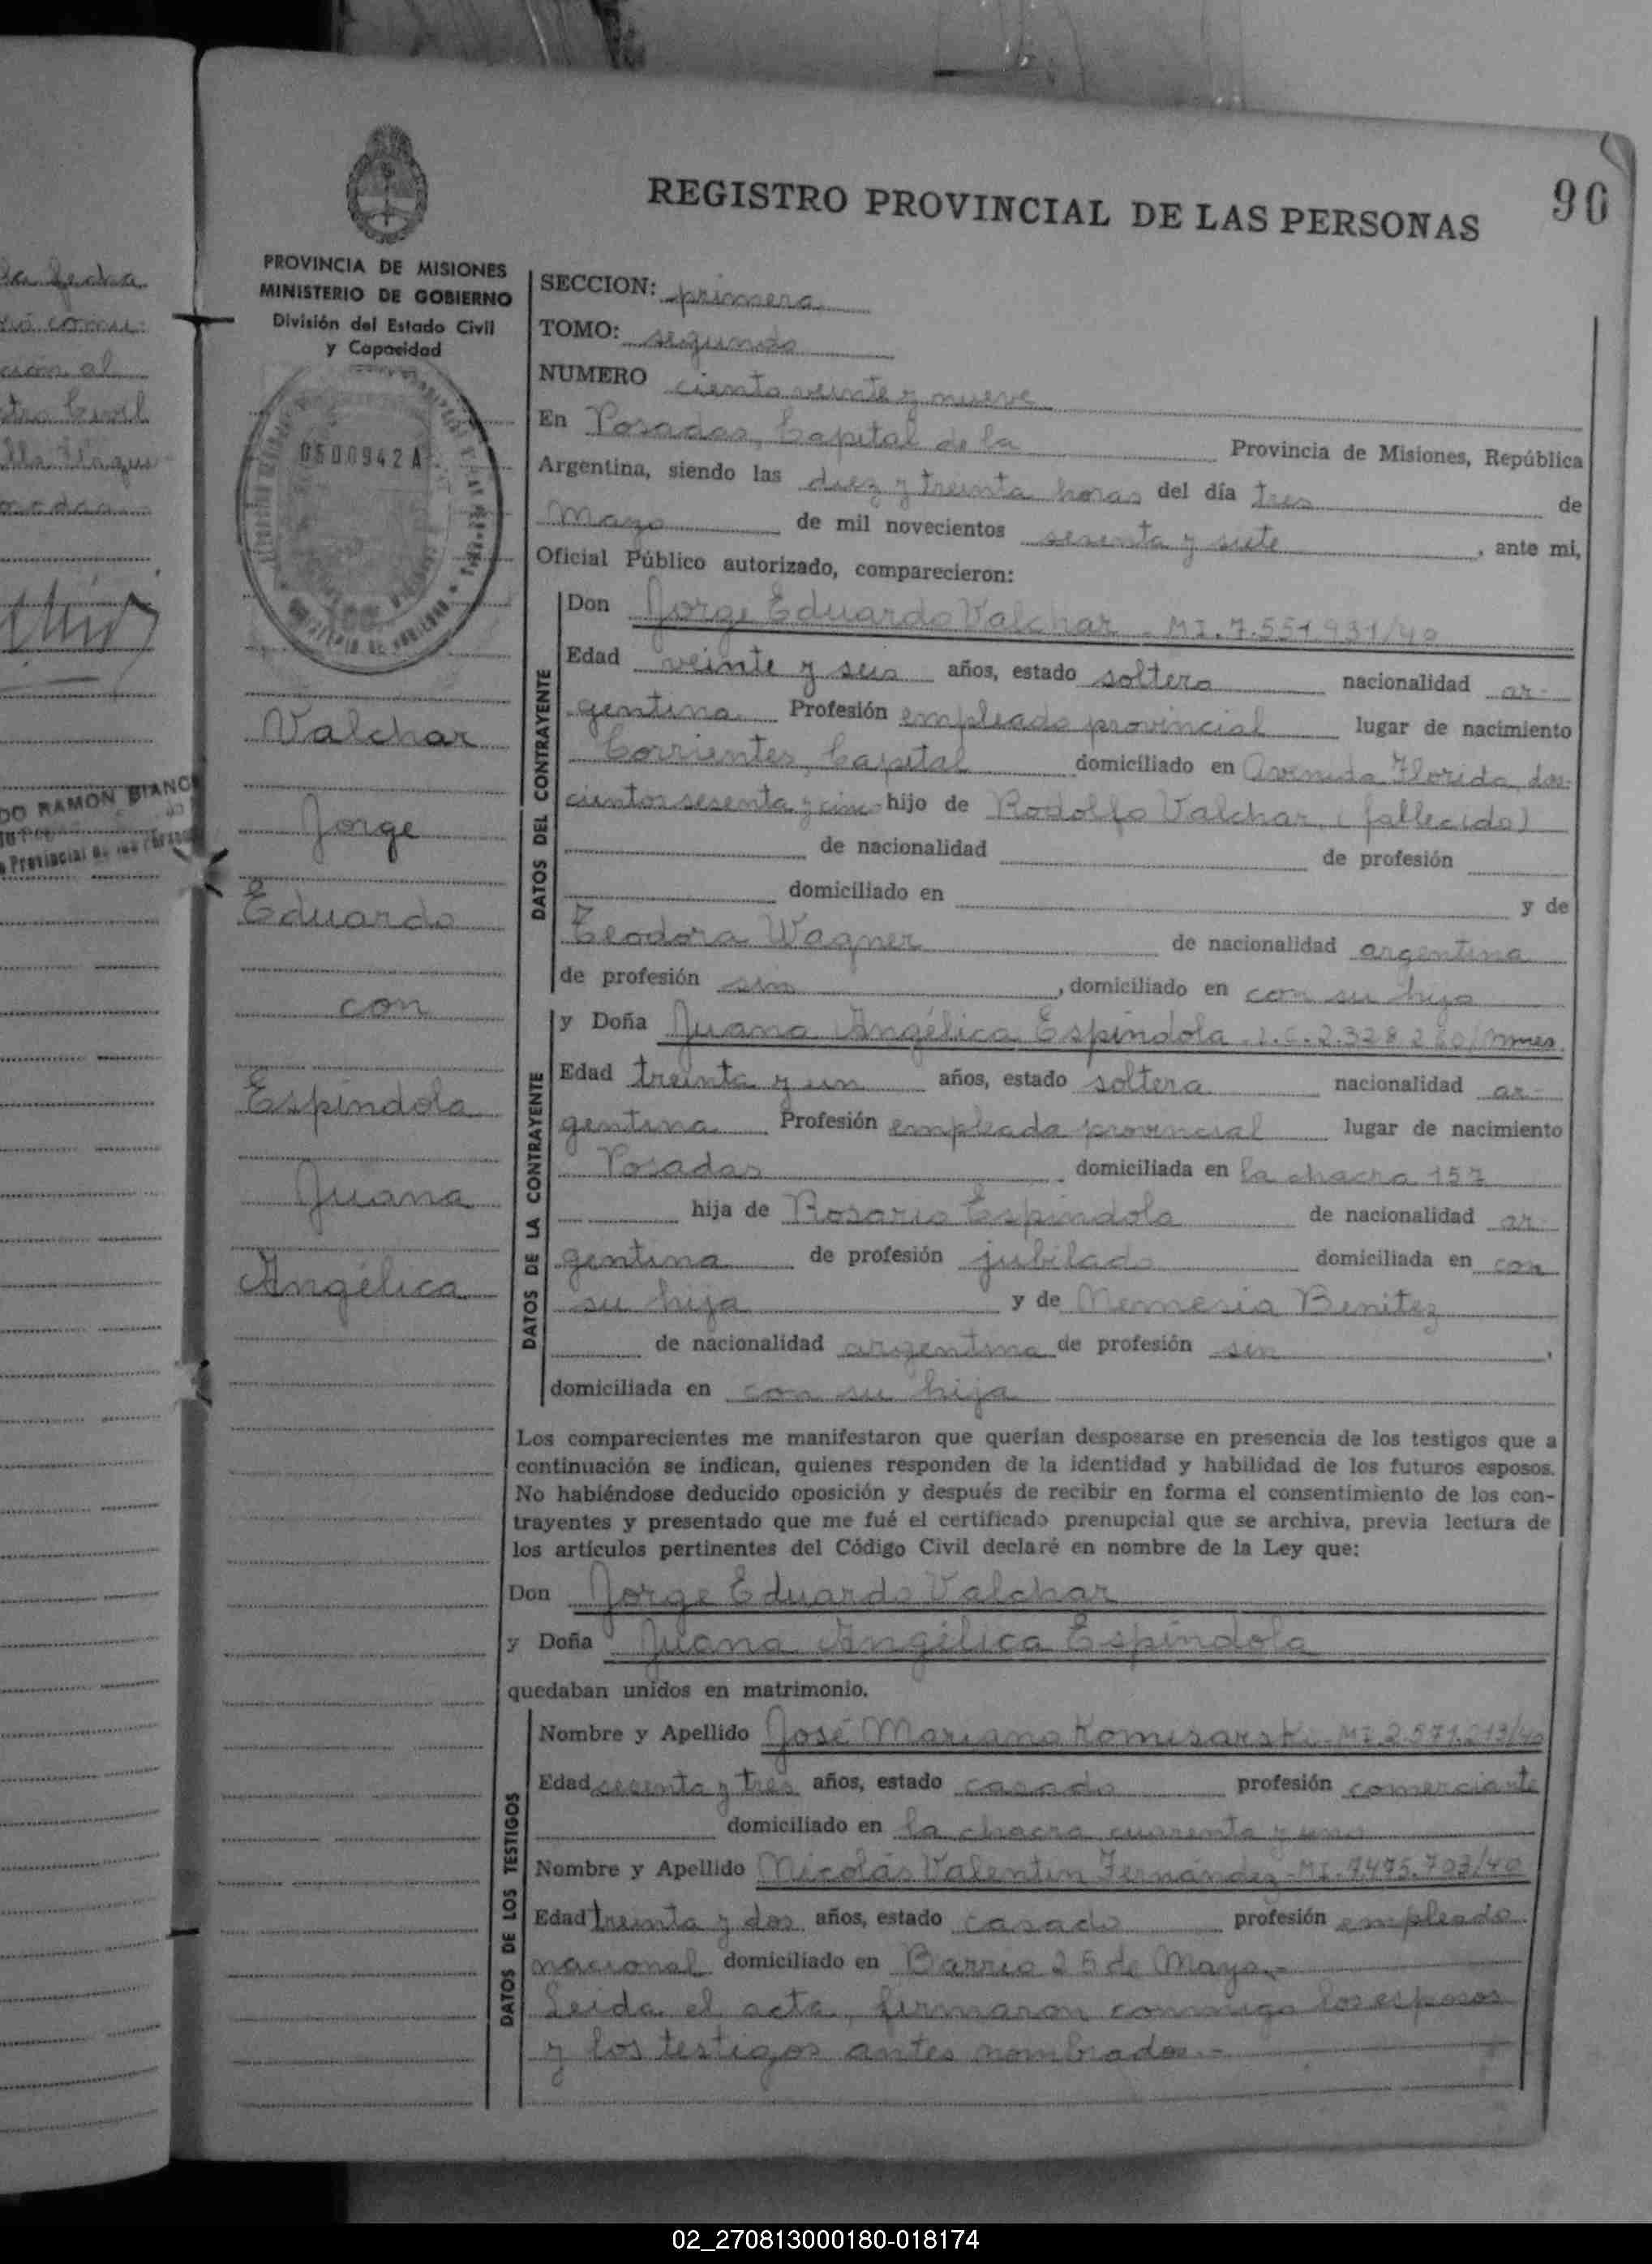 la fecha
ción al
REGISTRO PROVINCIAL DE LAS PERSONAS
90
PROVINCIA DE MISIONES
MINISTERIO DE GOBIERNO
División del Estado Civil
y Capacidad
0500942 A
Valchar
Jorge
Eduardo
con
Espíndola
Juana
Angélica
DO RAMON BIANC
Provincial de las Personas
SECCION: primera
TOMO: segundo
NUMERO ciento veinte y nueve
En Posadas, Capital de la Provincia de Misiones, República
Argentina, siendo las diez y treinta horas del día tres de
Mayo de mil novecientos sesenta y siete, ante mi,
Oficial Público autorizado, comparecieron:
DATOS DEL CONTRAYENTE
Don Jorge Eduardo Valchar - MI. 7.551.931/40
Edad veinte y seis años, estado soltero nacionalidad ar-
gentina Profesión empleado provincial lugar de nacimiento
Corrientes, Capital domiciliado en Avenida Florida dos-
cientos sesenta y cinco hijo de Rodolfo Valchar, (fallecido)
de nacionalidad de profesión
domiciliado en y de
Teodora Wagner de nacionalidad argentina
de profesión sin, domiciliado en con su hijo
DATOS DE LA CONTRAYENTE
y Doña Juana Angélica Espíndola - L.C. 2.328.280/Mnes
Edad treinta y un años, estado soltera nacionalidad ar-
gentina Profesión empleada provincial lugar de nacimiento
Posadas domiciliada en la chacra 157
hija de Rosario Espíndola de nacionalidad ar-
gentina de profesión jubilado domiciliada en con
su hija y de Nemesia Benítez
de nacionalidad argentina de profesión sin,
domiciliada en con su hija
Los comparecientes me manifestaron que querían desposarse en presencia de los testigos que a
continuación se indican, quienes responden de la identidad y habilidad de los futuros esposos.
No habiéndose deducido oposición y después de recibir en forma el consentimiento de los con-
trayentes y presentado que me fué el certificado prenupcial que se archiva, previa lectura de
los artículos pertinentes del Código Civil declaré en nombre de la Ley que:
Don Jorge Eduardo Valchar
y Doña Juana Angélica Espíndola
quedaban unidos en matrimonio.
DATOS DE LOS TESTIGOS
Nombre y Apellido José Mariano Komisarski - MI. 2.571.213/40
Edad sesenta y tres años, estado casado profesión comerciante
domiciliado en la chacra cuarenta y uno
Nombre y Apellido Nicolás Valentín Fernández - MI. 7.475.703/40
Edad treinta y dos años, estado casado profesión empleado
nacional domiciliado en Barrio 25 de Mayo.-
Leida el acta, firmaron conmigo los esposos
y los testigos antes nombrados.-
02_270813000180-018174